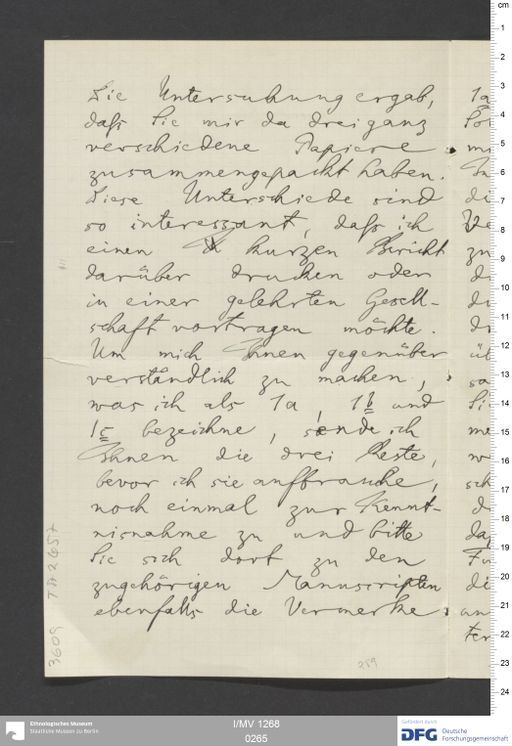 Die Untersuchung ergab,
daß Sie mir da drei ganz
verschiedene Papiere
zusammengepackt haben.
Diese Unterschiede sind
so interessant, daß ich
einen kurzen Bericht
darüber drucken oder
in einer gelehrten Gesell-
schaft vortragen möchte.
Um mich Ihnen gegenüber
verständlich zu machen,
was ich als 1a, 1b und
1c bezeichne, sende ich
Ihnen die drei Reste,
bevor ich sie aufbrauche,
noch einmal zur Kennt-
nisnahme zu und bitte
Sie sich dort zu den
zugehörigen Manuscripten
ebenfalls die Vermerke
1a
di
zu
di
sa
Si
me
sch
di
259
cm
1
2
3
4
5
6
7
8
9
10
11
12
13
14
15
16
17
18
19
20
21
22
23
24
Ethnologisches Museum
Staatliche Museen zu Berlin
I/MV 1268
0265
Gefördert durch
DFG Deutsche
Forschungsgemeinschaft